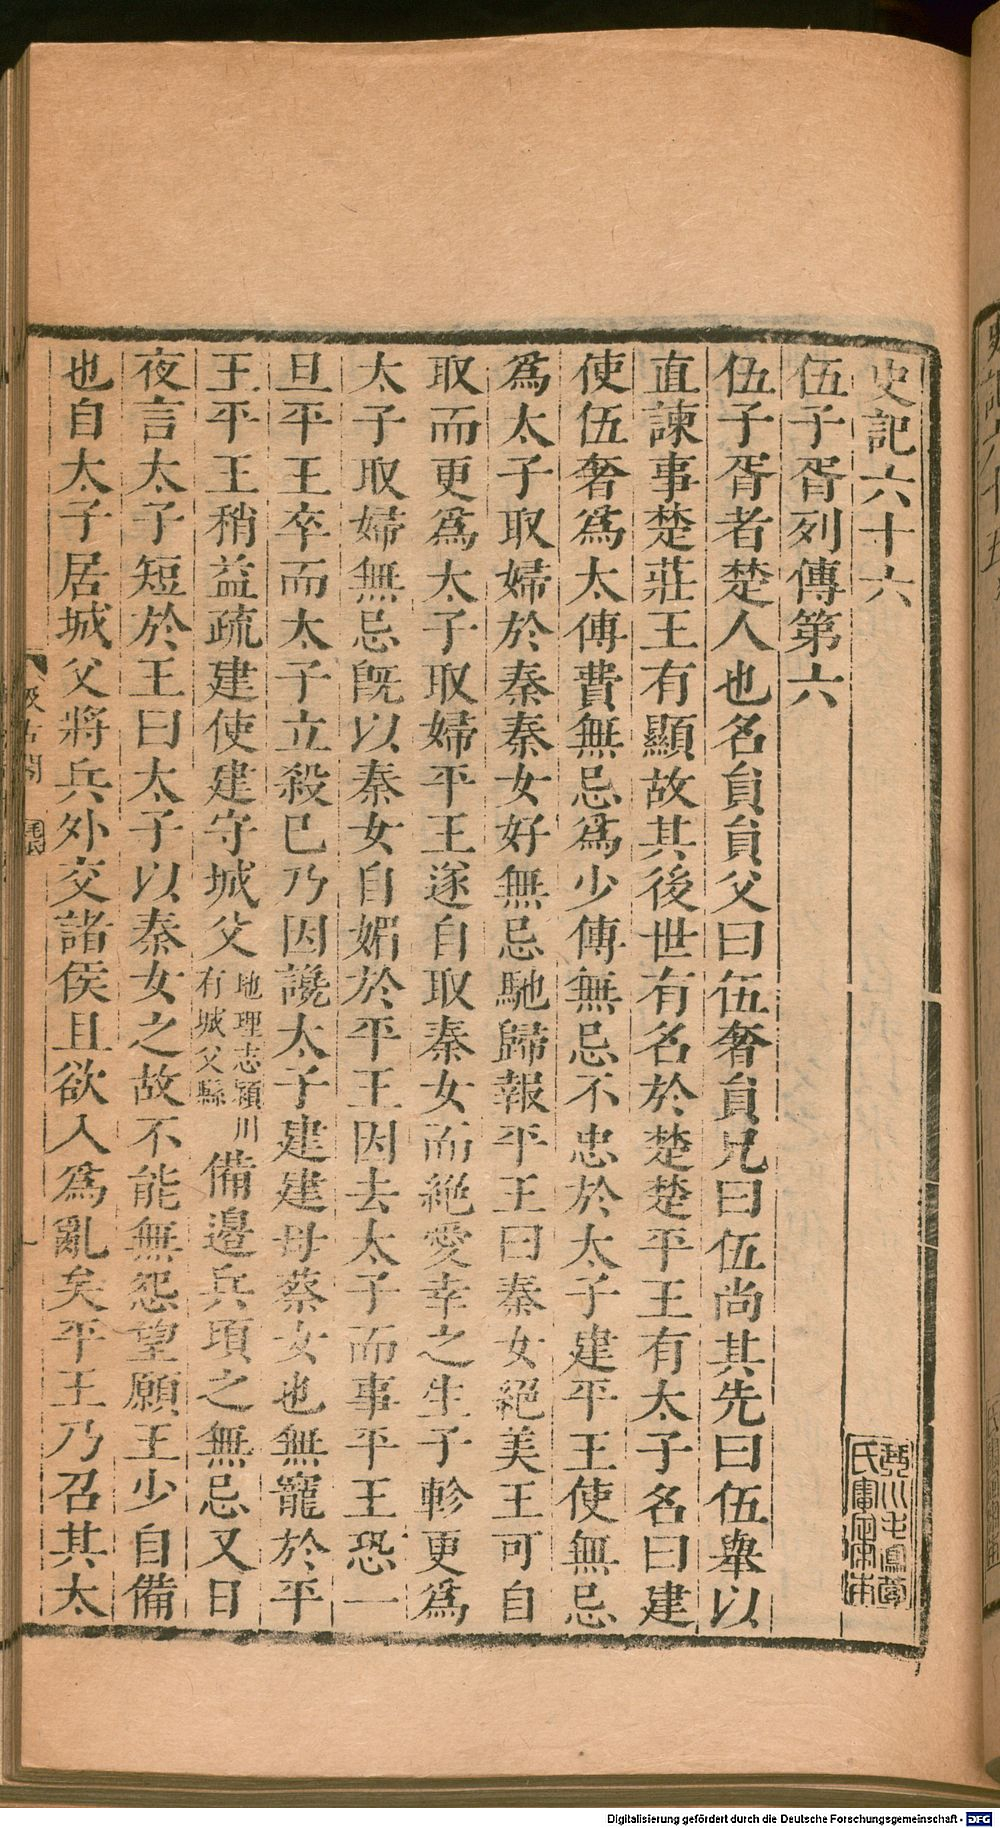 史記六十六
伍子胥列傳第六
伍子胥者楚人也名員員父曰伍奢員兄曰伍尚其先曰伍舉以
直諫事楚莊王有顯故其後世有名於楚楚平王有太子名曰建
使伍奢爲太傅費無忌爲少傅無忌不忠於太子建平王使無忌
爲太子取婦於秦秦女好無忌馳歸報平王曰秦女絕美王可自
取而更爲太子取婦平王遂自取秦女而絕愛幸之生子軫更爲
太子取婦無忌旣以秦女自媚於平王因去太子而事平王恐一
旦平王卒而太子立殺已乃因讒太子建建母蔡女也無寵於平
王平王稍益疏建使建守城父
地理志潁川
有城父縣
備邉兵頃之無忌又日
夜言太子短於王曰太子以秦女之故不能無怨望願王少自備
也自太子居城父將兵外交諸侯且欲入爲亂矣平王乃召其太
汲古閣
毛氏
一
Digitalisierung gefördert durch die Deutsche Forschungsgemeinschaft - DFG